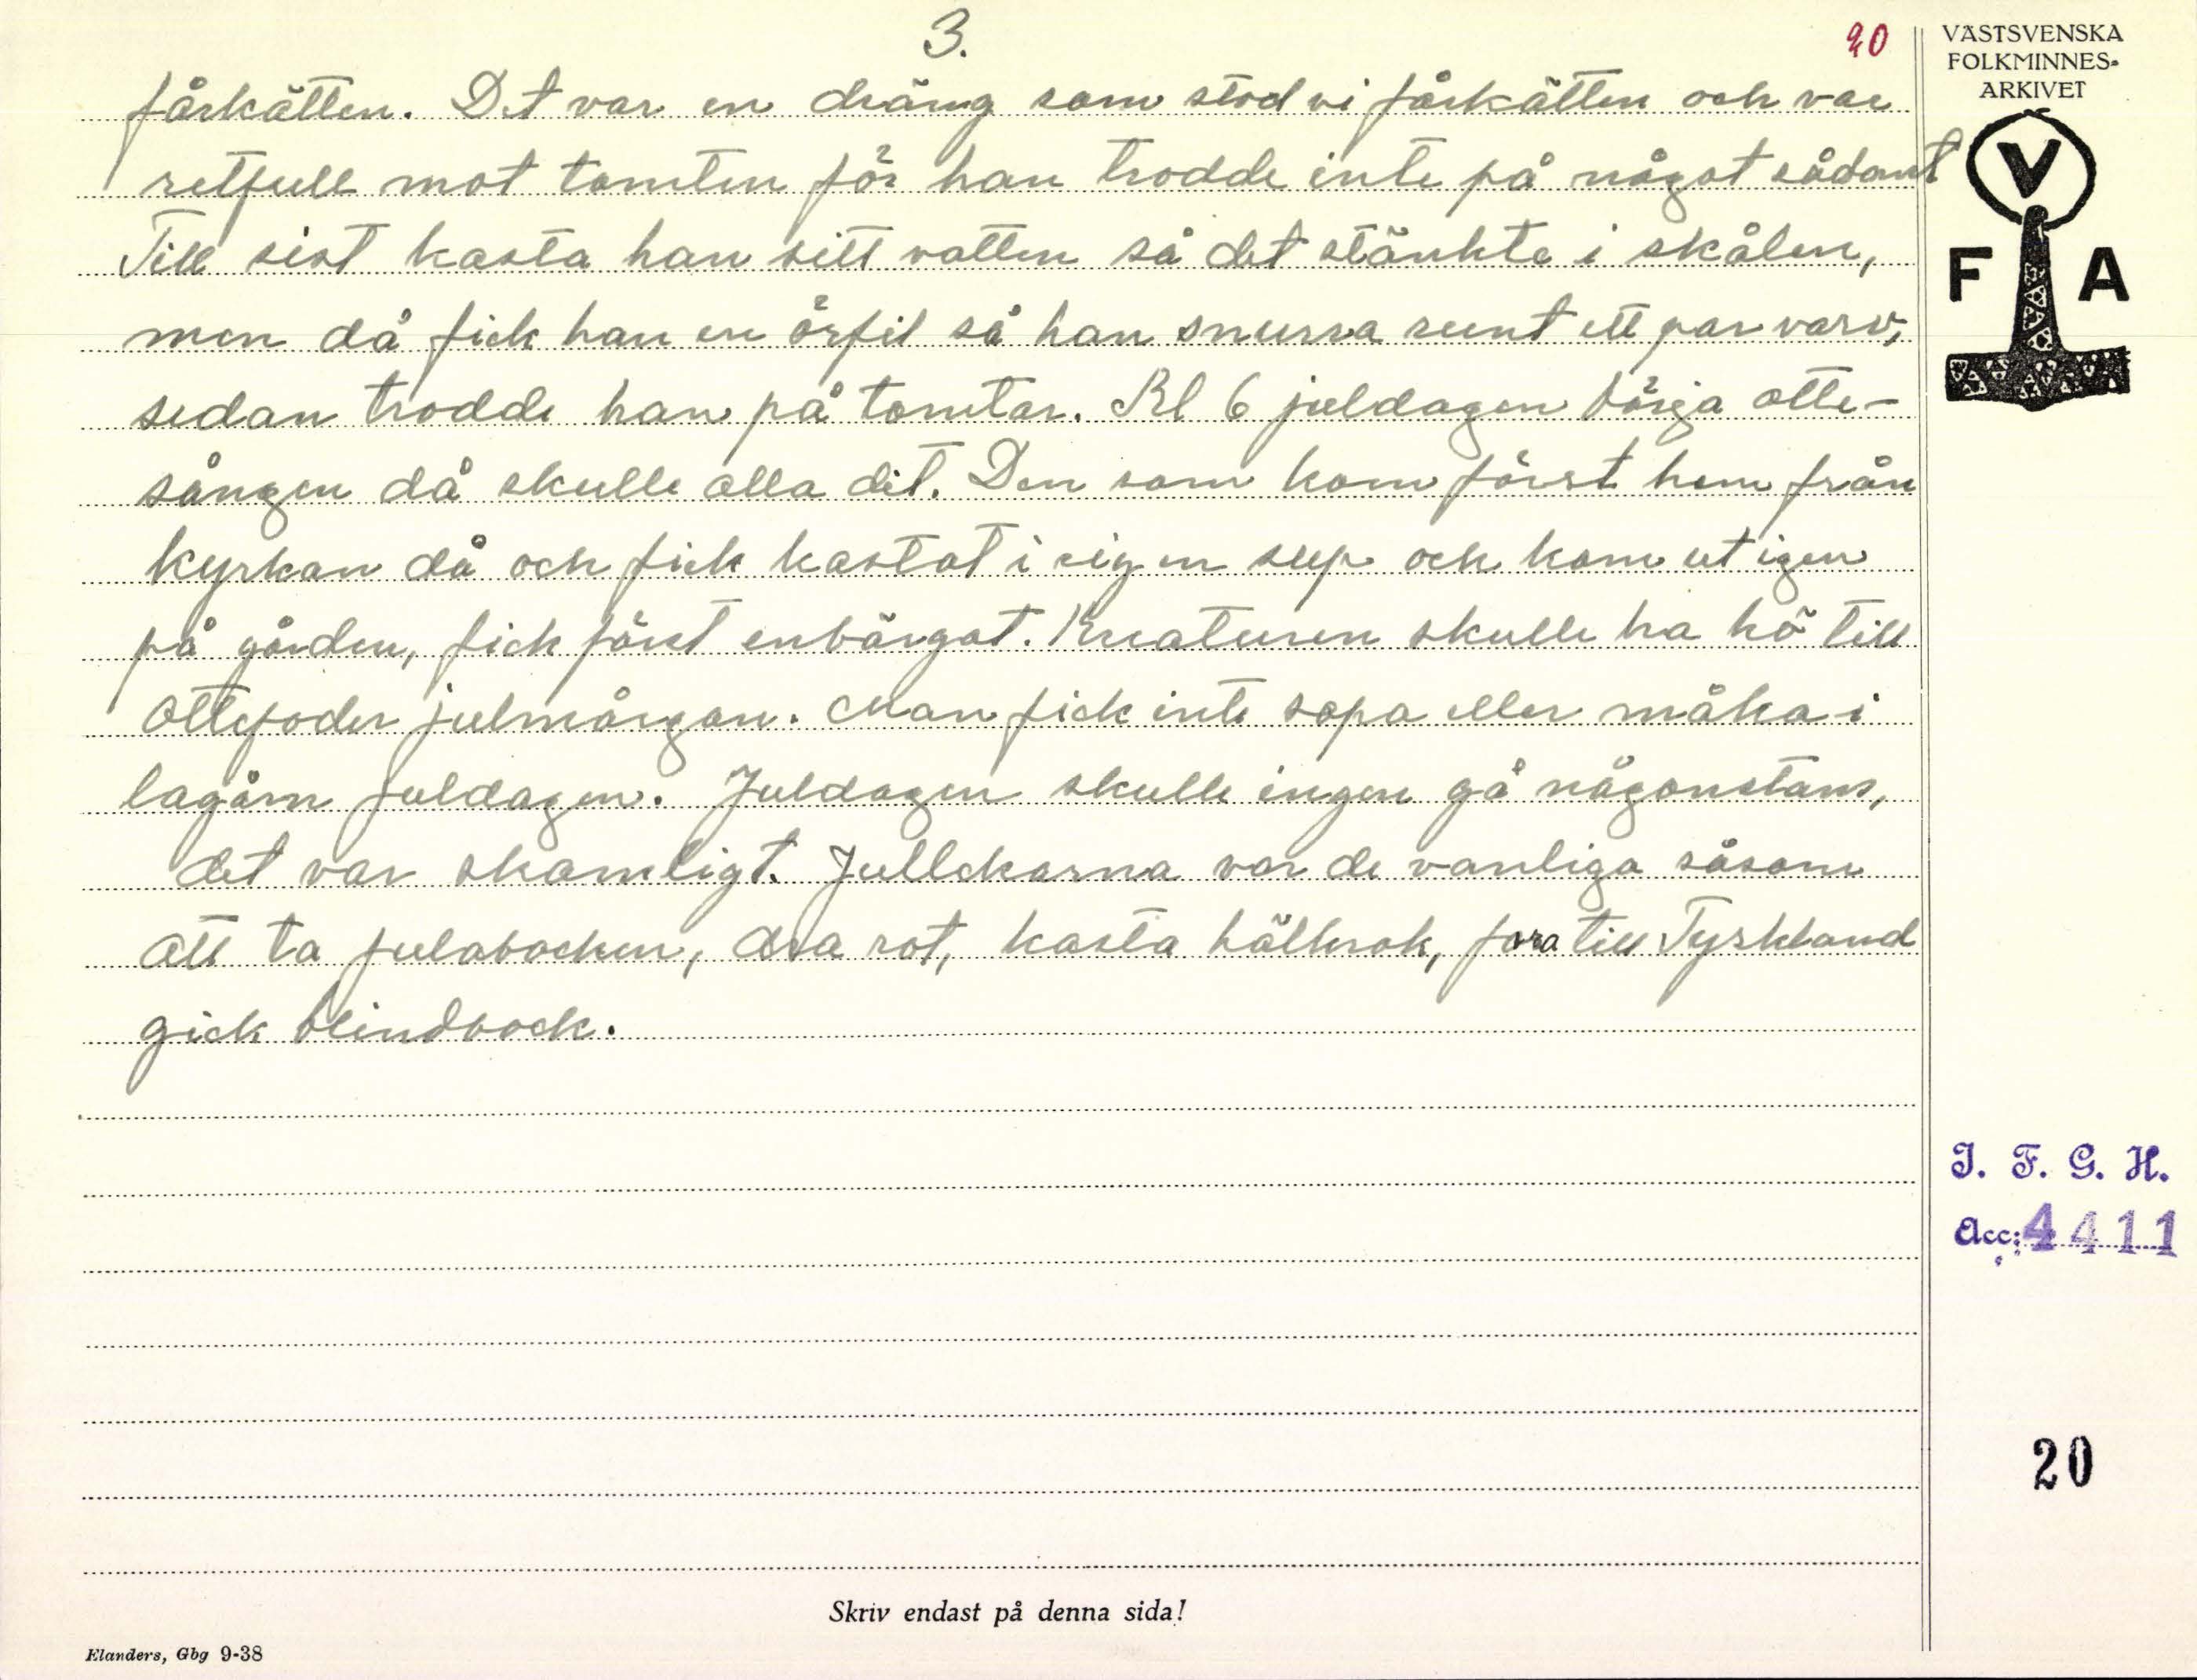 3.
20
VÄSTSVENSKA
FOLKMINNES-
ARKIVET
V
F A
fårkätten. Det var en dräng som stod vi fårkätten och var
retfull mot tomten för han trodde inte på något sådant
Till sist kasta han sitt vatten så det stänkte i skålen,
men då fick han en örfil så han snurra runt ett par varv,
sedan trodde han på tomtar. Kl 6 juldagen börja otte-
sången då skulle alla dit. Den som kom först hem från
kyrkan då och fick kastat i sig en sup och kom ut igen
på gården, fick först enbärgat. Kreaturen skulle ha hö till
ottefoder julmårgon. Man fick inte sopa eller måka i
lagårn juldagen. Juldagen skulle ingen gå någonstans,
det var skamligt. Jullekarna var de vanliga såsom
att ta julabocken, dra rot, kasta hällerok, fara till Tyskland
gick blindbock.
I. F. G. H.
Acc: 4411
20
Skriv endast på denna sida!
Elanders, Gbg 9-38